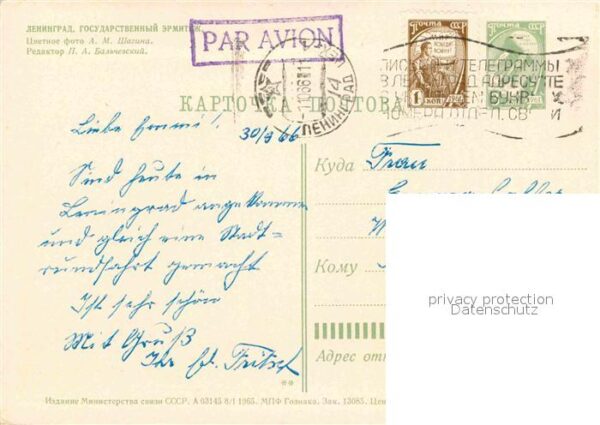 ЛЕНИНГРАД. ГОСУДАРСТВЕННЫЙ ЭРМИТАЖ.
Цветное фото А. М. Шагина.
Редактор П. А. Бальчевский.
PAR AVION
ПОЧТА СССР
1 КОП
ПОЧТА СССР
ЛЕНИНГРАД
ТЕЛЕГРАММЫ
КАРТОЧКА ПОЧТОВАЯ
Liebe Emmi!
30/9 66
Sind heute in
Leningrad angekommen
und gleich eine Stadt=
rundfahrt gemacht
Ist sehr schön
Mit Gruß
Куда Frau
Кому
Адрес отп
privacy protection
Datenschutz
Издание Министерства связи СССР. А 03145 8/I 1965. МПФ Гознака. Зак. 13085. Цен